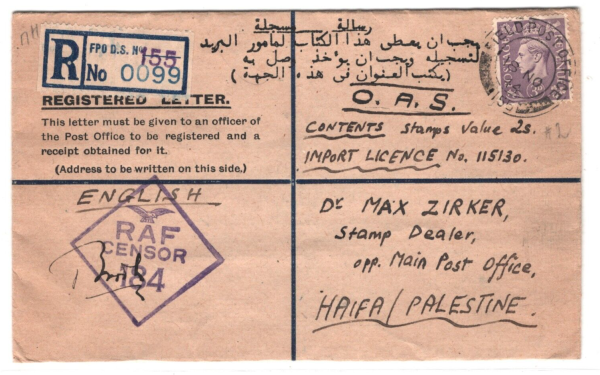 رسالة مسجلة
يجب ان يعطى هذا الكتاب لمامور البريد
لتسجيله ويجب ان يؤاخذ وصل به
(يكتب العنوان فى هذه الجهة)
R
FPO D.S. No 155
No 0099
REGISTERED LETTER.
This letter must be given to an officer of
the Post Office to be registered and a
receipt obtained for it.
(Address to be written on this side.)
FIELD POST OFFICE
O.A.S.
CONTENTS stamps value 2s.
IMPORT LICENCE No. 115130.
ENGLISH
RAF
CENSOR
184
Dr MAX ZIRKER,
Stamp Dealer,
opp. Main Post Office,
HAIFA/PALESTINE.